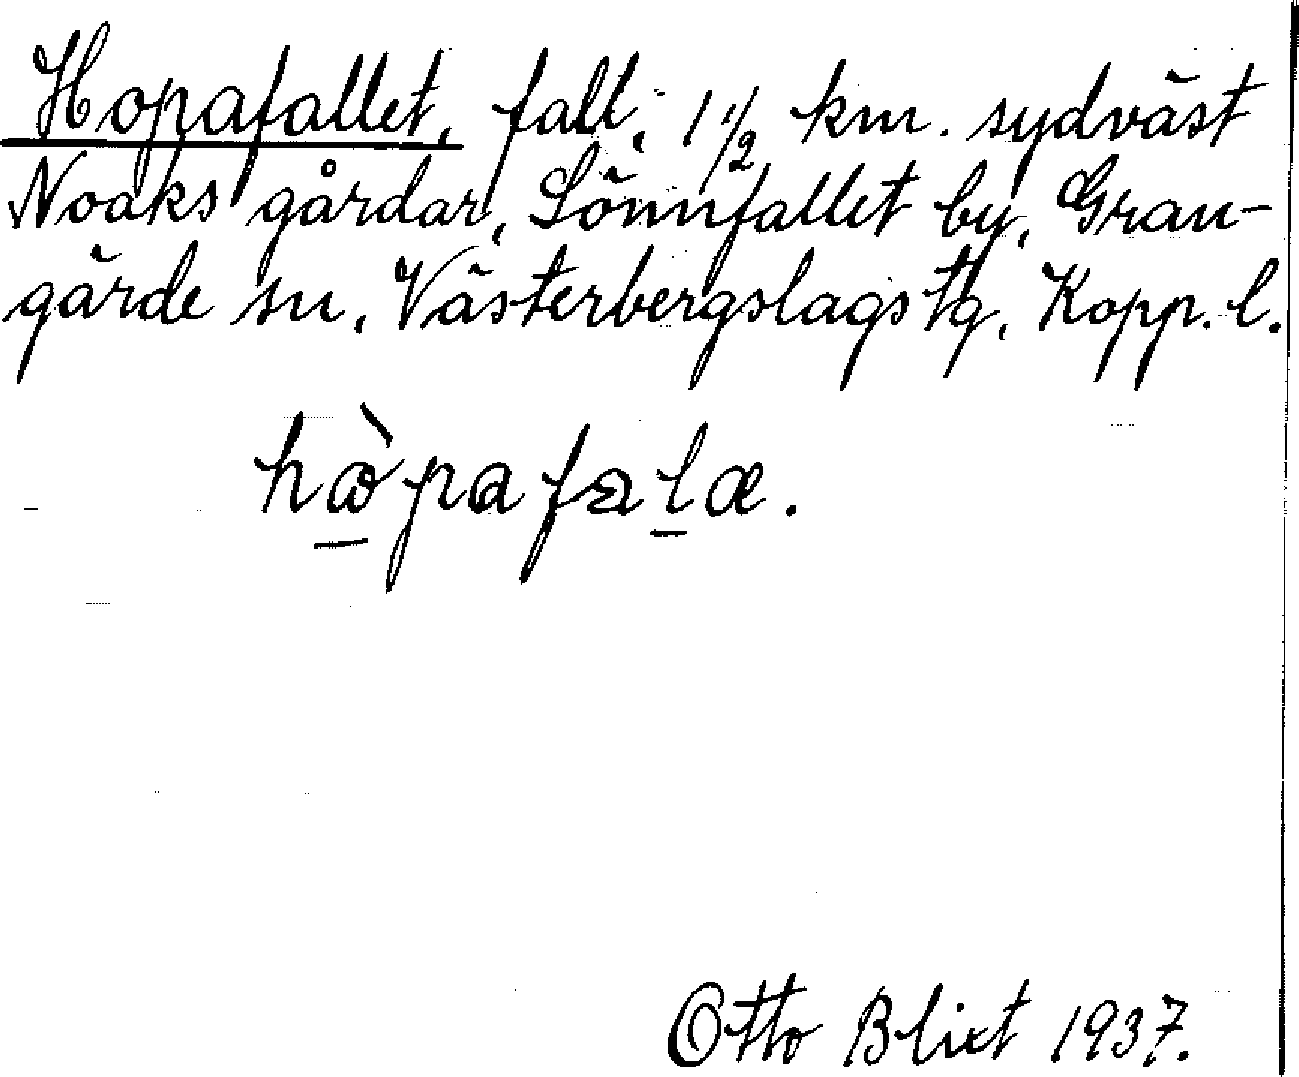 Hopafallet, fall, 1 1/2 km. sydväst
Noaks gårdar, Lönnfallet by, Gran-
gärde sn, Västerbergslags tg, Kopp. l.
Otto Blixt 1937.